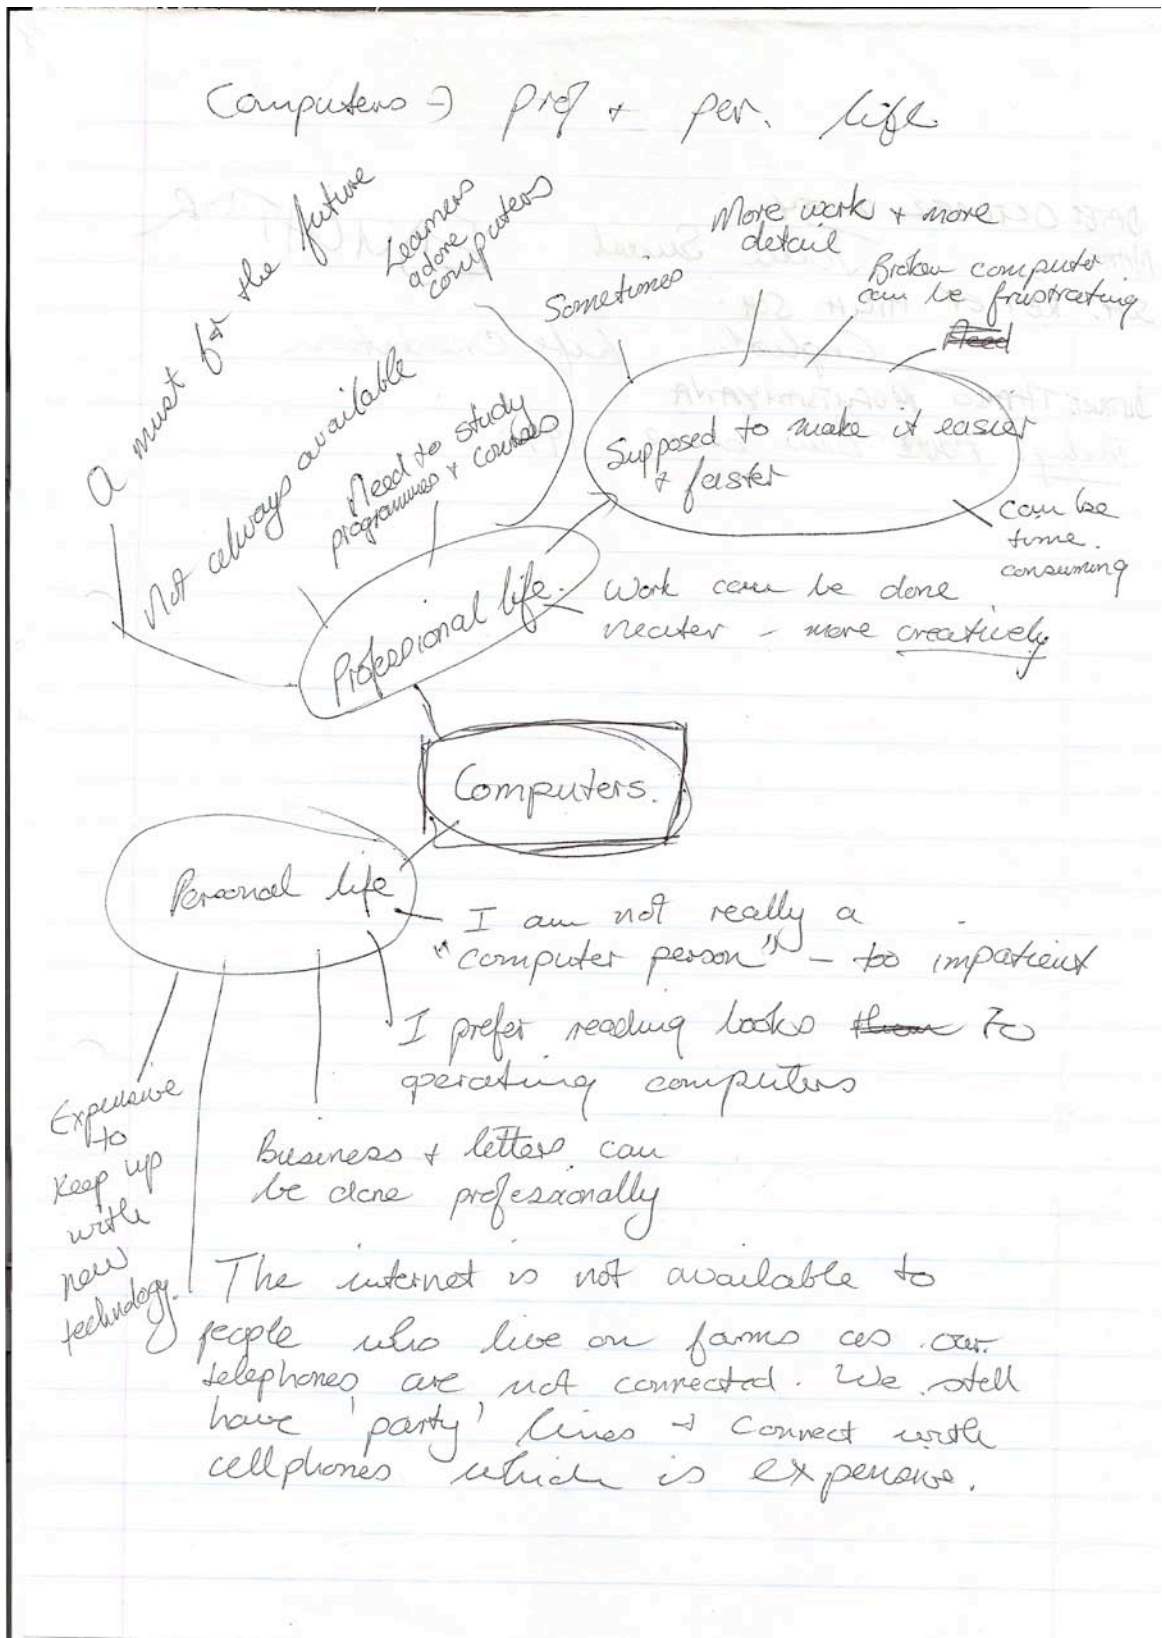 Computers → prof + per. life
A must for the future
Not always available
Need to study
programmes + courses
Learners
adore
computers
Sometimes
More work + more
detail
Broken computer
can be frustrating
Need
Supposed to make it easier
+ faster
can be
time.
consuming
Professional life.
Work can be done
neater - more creatively
Computers.
Personal life
I am not really a
"computer person" - too impatient
I prefer reading books than to
operating computers
Business + letters can
be done professionally
Expensive
to
keep up
with
new
technology.
The internet is not available to
people who live on farms as our
telephones are not connected. We still
have 'party' lines + connect with
cellphones which is expensive.